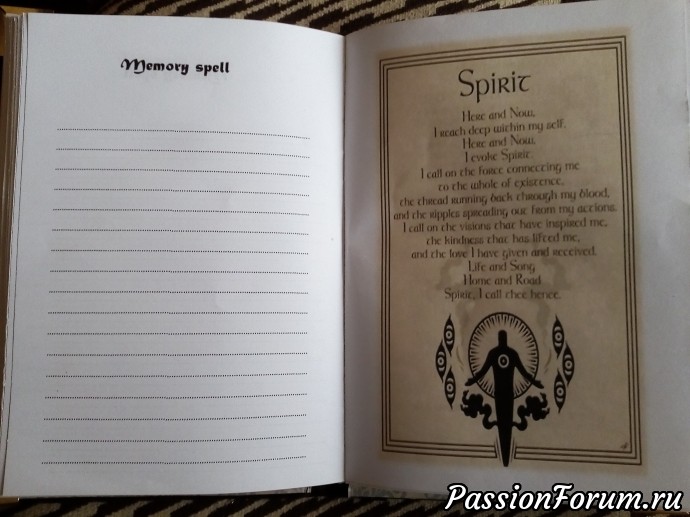 Memory spell
Spirit
Here and Now,
I reach deep within my self.
Here and Now,
I evoke Spirit.
I call on the force connecting me
to the whole of existence,
the thread running back through my blood,
and the ripples spreading out from my actions.
I call on the visions that have inspired me,
the kindness that has lifted me,
and the love I have given and received.
Life and Song
Home and Road
Spirit, I call thee hence.
PassionForum.ru